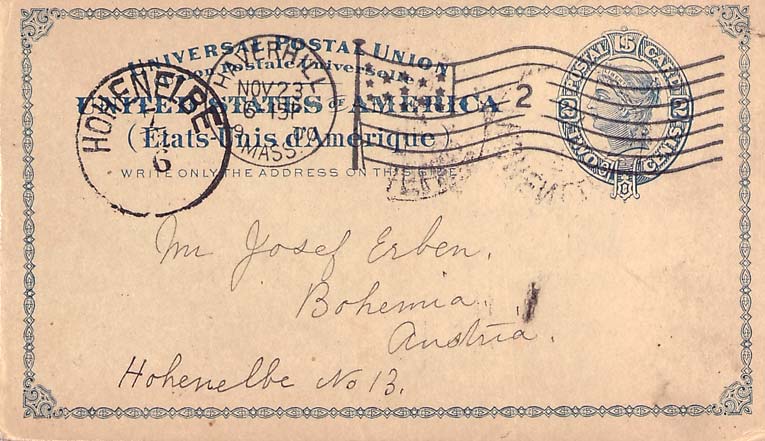 UNIVERSAL POSTAL UNION
Union Postale Universelle
UNITED STATES OF AMERICA
(États-Unis d'Amérique)
WRITE ONLY THE ADDRESS ON THIS SIDE
HAVERHILL
NOV 23
MASS.
HOHENELBE
6
2
U.S.
POSTAL CARD
2 2
TWO CENTS
Mr Josef Erben.
Bohemia.
Austria.
Hohenelbe No 13.